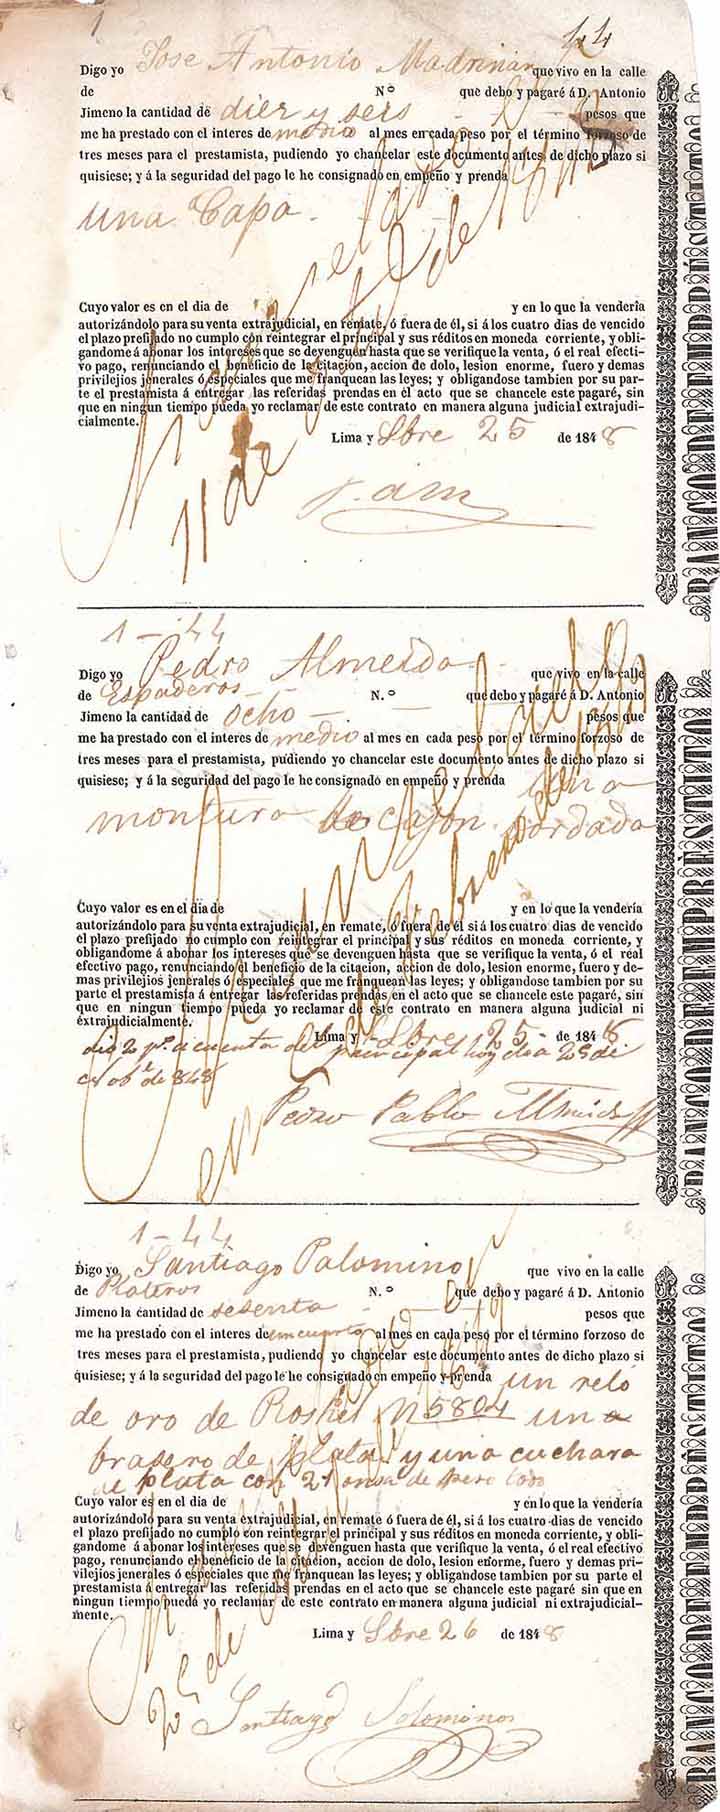 1 44
Digo yo Jose Antonio Madriñan que vivo en la calle
de Nº que debo y pagaré á D. Antonio
Jimeno la cantidad de diez y seis pesos que
me ha prestado con el interes de medio al mes en cada peso por el término forzoso de
tres meses para el prestamista, pudiendo yo chancelar este documento antes de dicho plazo si
quisiese; y á la seguridad del pago le he consignado en empeño y prenda
una Capa
Cuyo valor es en el dia de y en lo que la vendería
autorizándolo para su venta extrajudicial, en remate, ó fuera de él, si á los cuatro dias de vencido
el plazo prefijado no cumplo con reintegrar el principal y sus réditos en moneda corriente, y obli-
gandome á abonar los intereses que se devenguen hasta que se verifique la venta, ó el real efecti-
vo pago, renunciando el beneficio de la citacion, accion de dolo, lesion enorme, fuero y demas
privilejios jenerales ó especiales que me franquean las leyes; y obligandose tambien por su par-
te el prestamista á entregar las referidas prendas en el acto que se chancele este pagaré, sin
que en ningun tiempo pueda yo reclamar de este contrato en manera alguna judicial extrajudi-
cialmente.
Lima y 25 de 1848
11 de
BANCO DE EMPRÉSTITO
1-44
Digo yo Pedro Almeida que vivo en la calle
de Espaderos N.º que debo y pagaré á D. Antonio
Jimeno la cantidad de ocho pesos que
me ha prestado con el interes de medio al mes en cada peso por el término forzoso de
tres meses para el prestamista, pudiendo yo chancelar este documento antes de dicho plazo si
quisiese; y á la seguridad del pago le he consignado en empeño y prenda una
montura de cajon bordada
Cuyo valor es en el dia de y en lo que la vendería
autorizándolo para su venta extrajudicial, en remate, ó fuera de él si á los cuatro dias de vencido
el plazo prefijado no cumplo con reintegrar el principal y sus réditos en moneda corriente, y
obligandome á abonar los intereses que se devenguen hasta que se verifique la venta, ó el real
efectivo pago, renunciando el beneficio de la citacion, accion de dolo, lesion enorme, fuero y de-
mas privilejios jenerales ó especiales que me franquean las leyes; y obligandose tambien por su
parte el prestamista á entregar las referidas prendas en el acto que se chancele este pagaré, sin
que en ningun tiempo pueda yo reclamar de este contrato en manera alguna judicial ni
éxtrajudicialmente.
Lima y 25 de 1848
dio 2 ps. a cuenta del principal hoy dia 25 de
de 848
Pedro Pablo Almeida
en de Febrero de
BANCO DE EMPRÉSTITO
1-44
Digo yo Santiago Palomino que vivo en la calle
de Plateros N.º que debo y pagaré á D. Antonio
Jimeno la cantidad de sesenta pesos que
me ha prestado con el interes de un cuarto al mes en cada peso por el término forzoso de
tres meses para el prestamista, pudiendo yo chancelar este documento antes de dicho plazo si
quisiese; y á la seguridad del pago le he consignado en empeño y prenda un reló
de oro de Roskel N 5804 una
brasero de plata y una cuchara
de plata con 21 onsa de peso todo
Cuyo valor es en el dia de y en lo que la vendería
autorizándolo para su venta extrajudicial, en remate ó fuera de él, si á los cuatro dias de vencido
el plazo prefijado no cumplo con reintegrar el principal y sus réditos en moneda corriente, y obli-
gandome á abonar los intereses que se devenguen hasta que verifique la venta, ó el real efectivo
pago, renunciando el beneficio de la citacion, accion de dolo, lesion enorme, fuero y demas pri-
vilejios jenerales ó especiales que me franquean las leyes; y obligandose tambien por su parte el
prestamista á entregar las referidas prendas en el acto que se chancele este pagaré sin que en
ningun tiempo pueda yo reclamar de este contrato en manera alguna judicial ni extrajudicial-
mente.
Lima y 26 de 1848
25 de
Santiago Solominos
BANCO DE EMPRÉSTITO